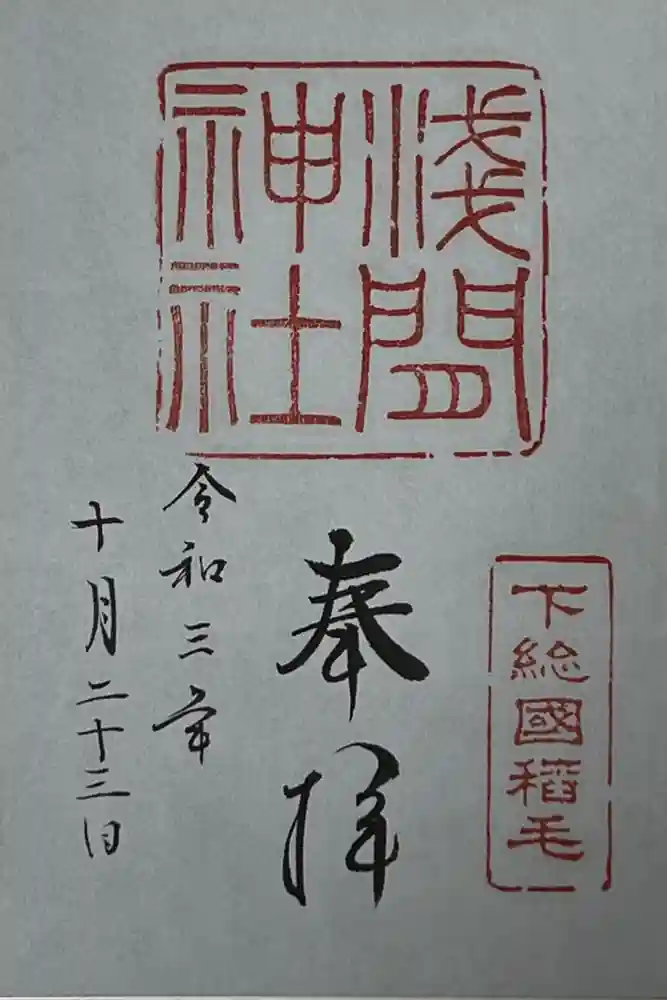 浅間
神社
下総國稲毛
奉拝
令和三年
十月二十三日